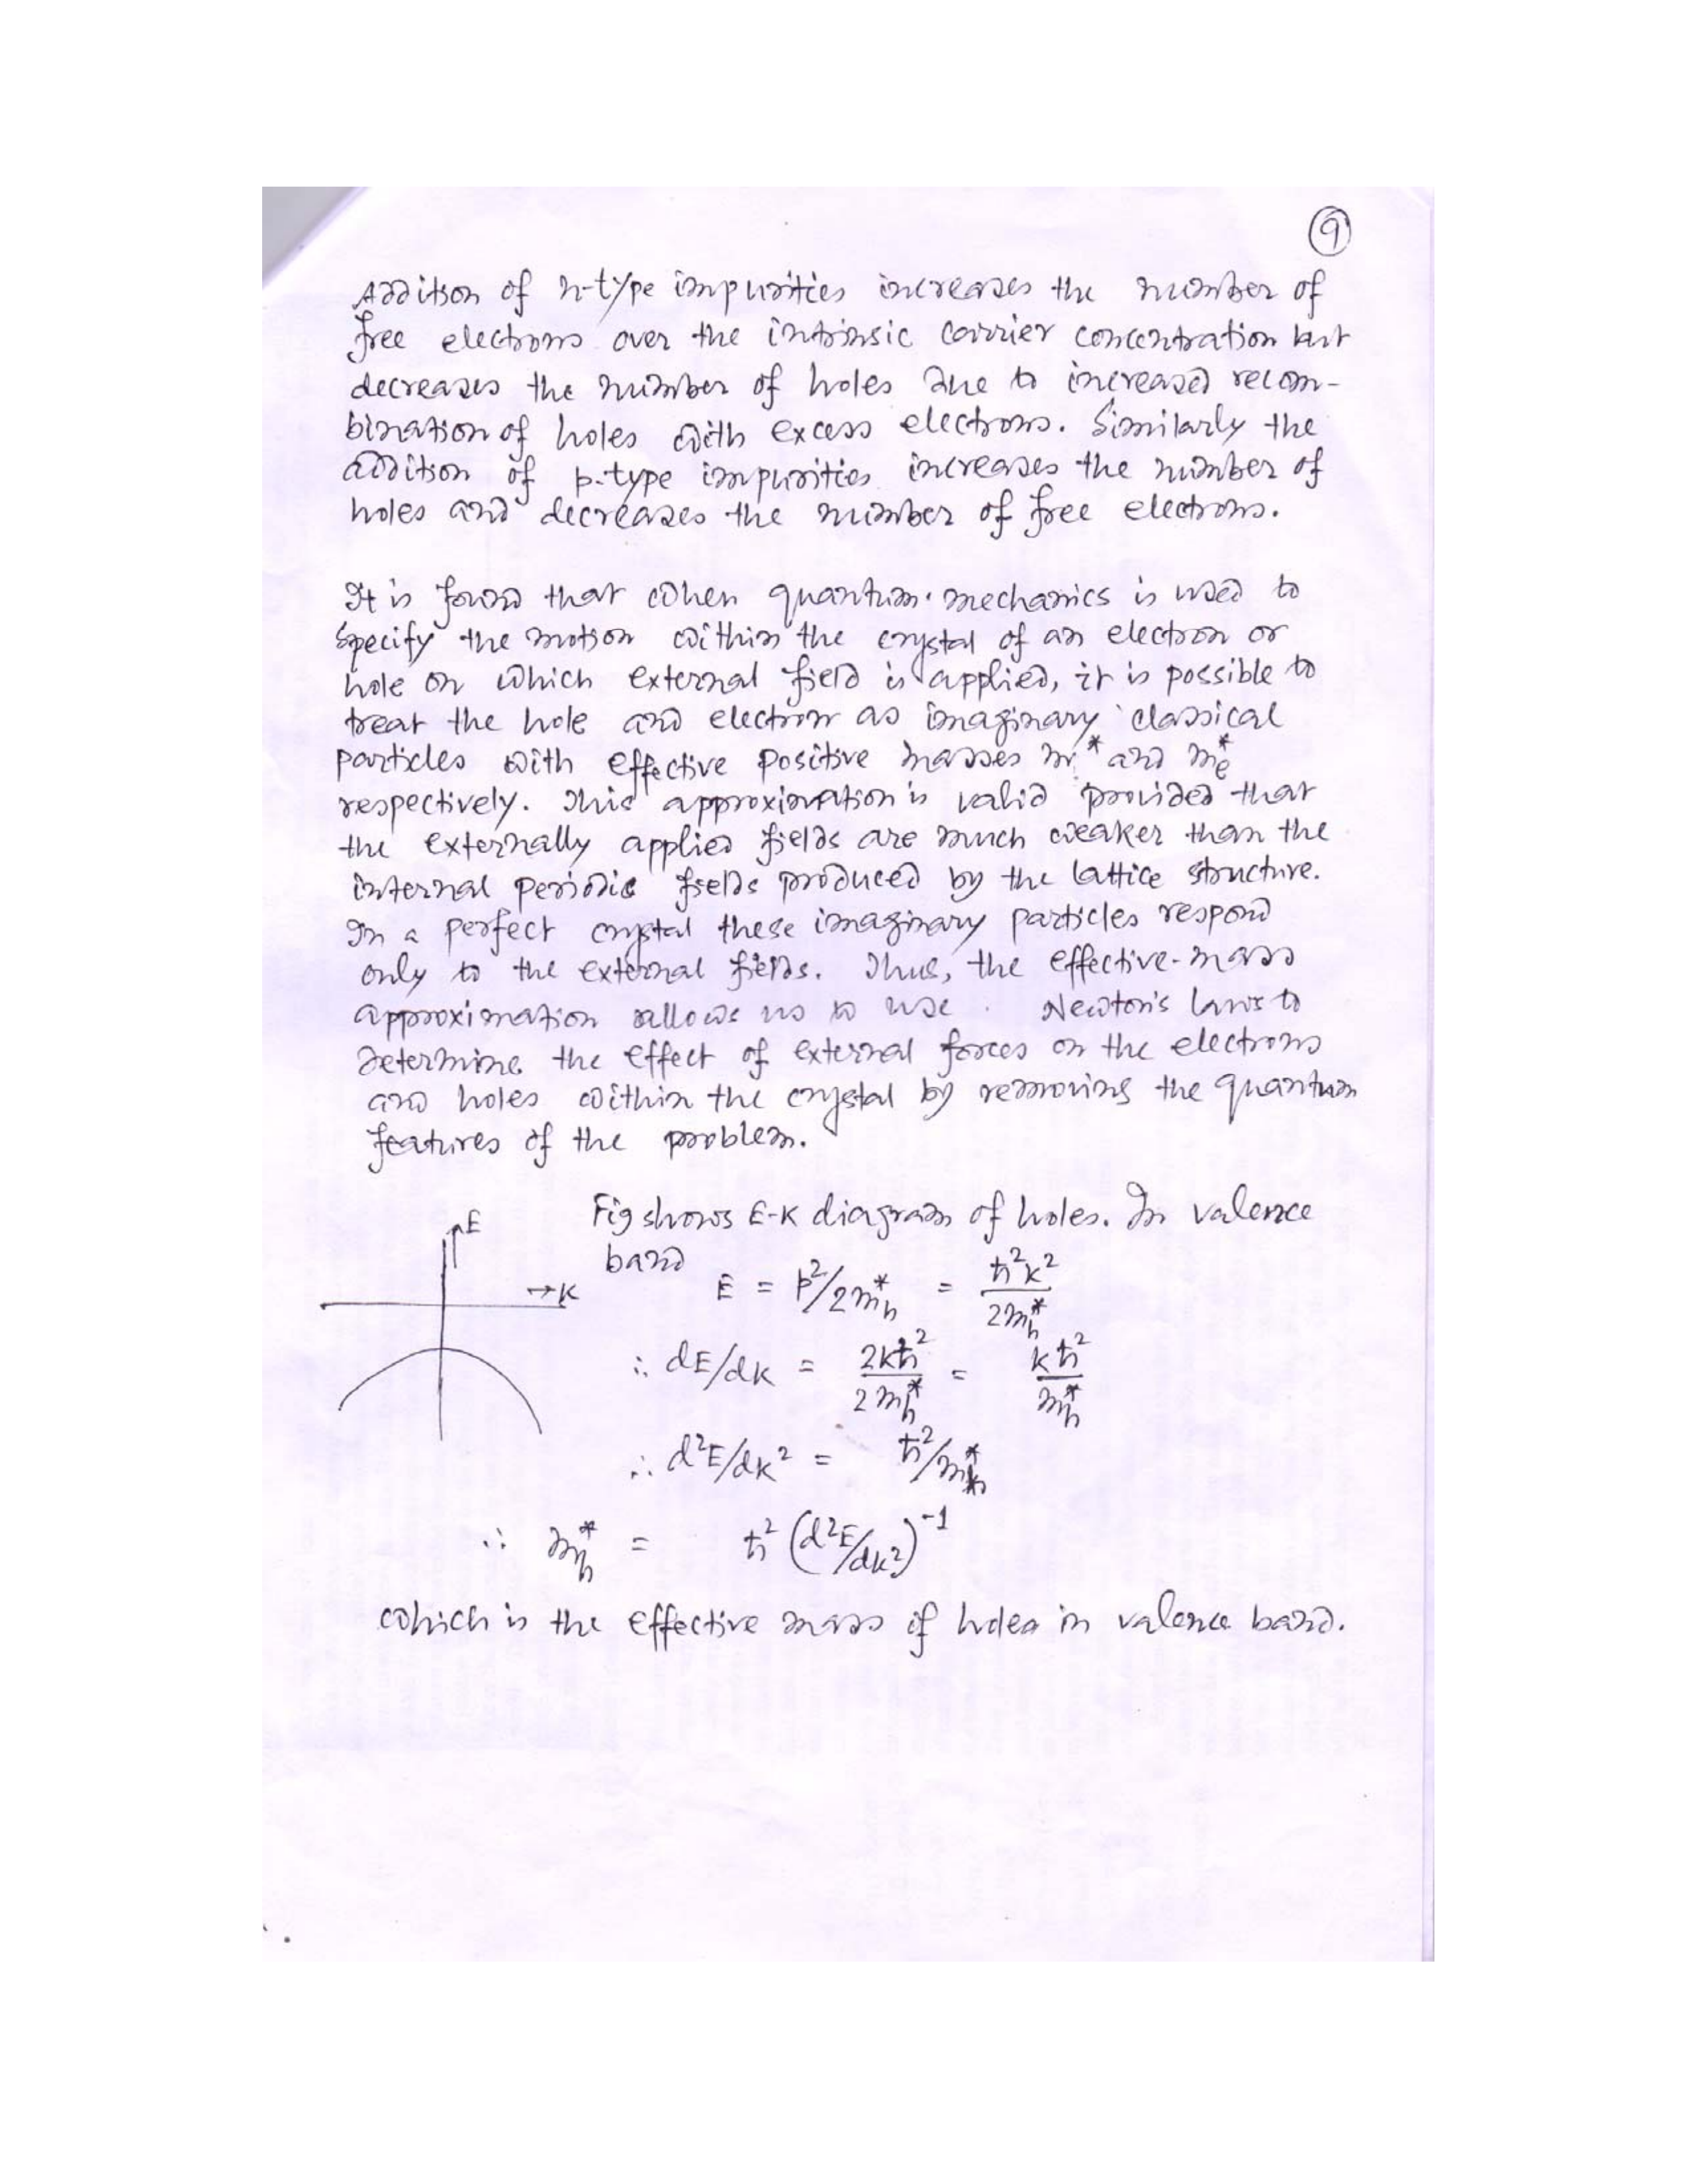 9
Addition of n-type impurities increases the number of
free electrons over the intrinsic carrier concentration but
decreases the number of holes due to increased recom-
bination of holes with excess electrons. Similarly the
addition of p-type impurities increases the number of
holes and decreases the number of free electrons.
It is found that when quantum mechanics is used to
specify the motion within the crystal of an electron or
hole on which external field is applied, it is possible to
treat the hole and electron as imaginary classical
particles with effective positive masses m* and me*
respectively. This approximation is valid provided that
the externally applied fields are much weaker than the
internal periodic fields produced by the lattice structure.
In a perfect crystal these imaginary particles respond
only to the external fields. Thus, the effective-mass
approximation allows us to use Newton's laws to
determine the effect of external forces on the electrons
and holes within the crystal by removing the quantum
features of the problem.
↑E
→K
Fig shows E-K diagram of holes. In valence
band
E = p²/2mh* = ħ²k²/2mh*
∴ dE/dK = 2kħ²/2mh* = kħ²/mh*
∴ d²E/dK² = ħ²/mh*
∴ mh* = ħ² (d²E/dK²)⁻¹
which is the effective mass of holes in valence band.